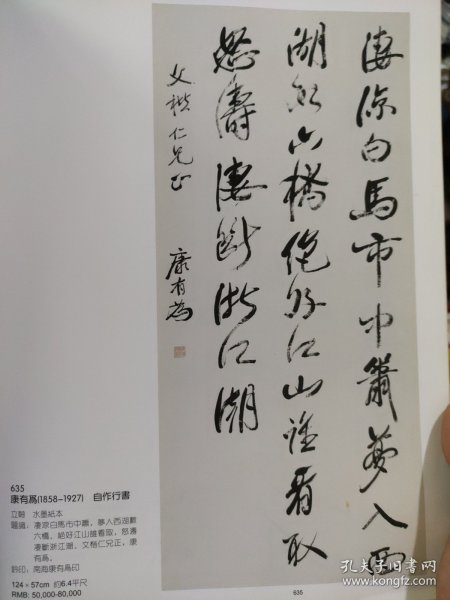 凄涼白馬市中簫夢入西
湖數六橋絕好江山誰看取
怒濤凄斷浙江潮
文楷仁兄正
康有為
635
康有為(1858-1927) 自作行書
立軸 水墨紙本
題識：凄涼白馬市中簫，夢入西湖數
六橋。絕好江山誰看取，怒濤
凄斷浙江潮。文楷仁兄正，康
有為。
鈐印：南海康有為印
124×57cm 約6.4平尺
RMB: 50,000-80,000
635
孔夫子旧书网